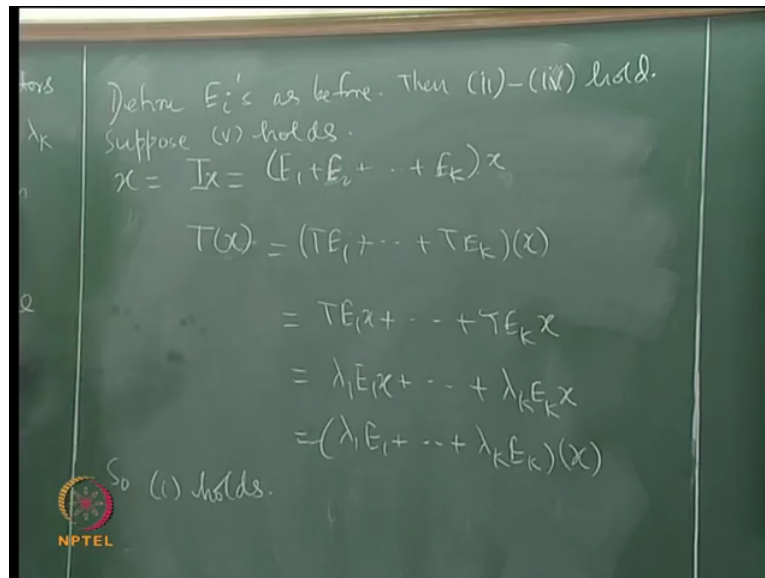 tors
λK
n
e
Define Ei's as before. Then (ii)-(iv) hold.
Suppose (v) holds.
x = Ix = (E1+E2+ ·· + EK)x
T(x) = (TE1+ ··· + TEK)(x)
= TE1x + ··· + TEKx
= λ1E1x + ··· + λKEKx
= (λ1E1+ ··· + λKEK)(x)
So (i) holds.
NPTEL